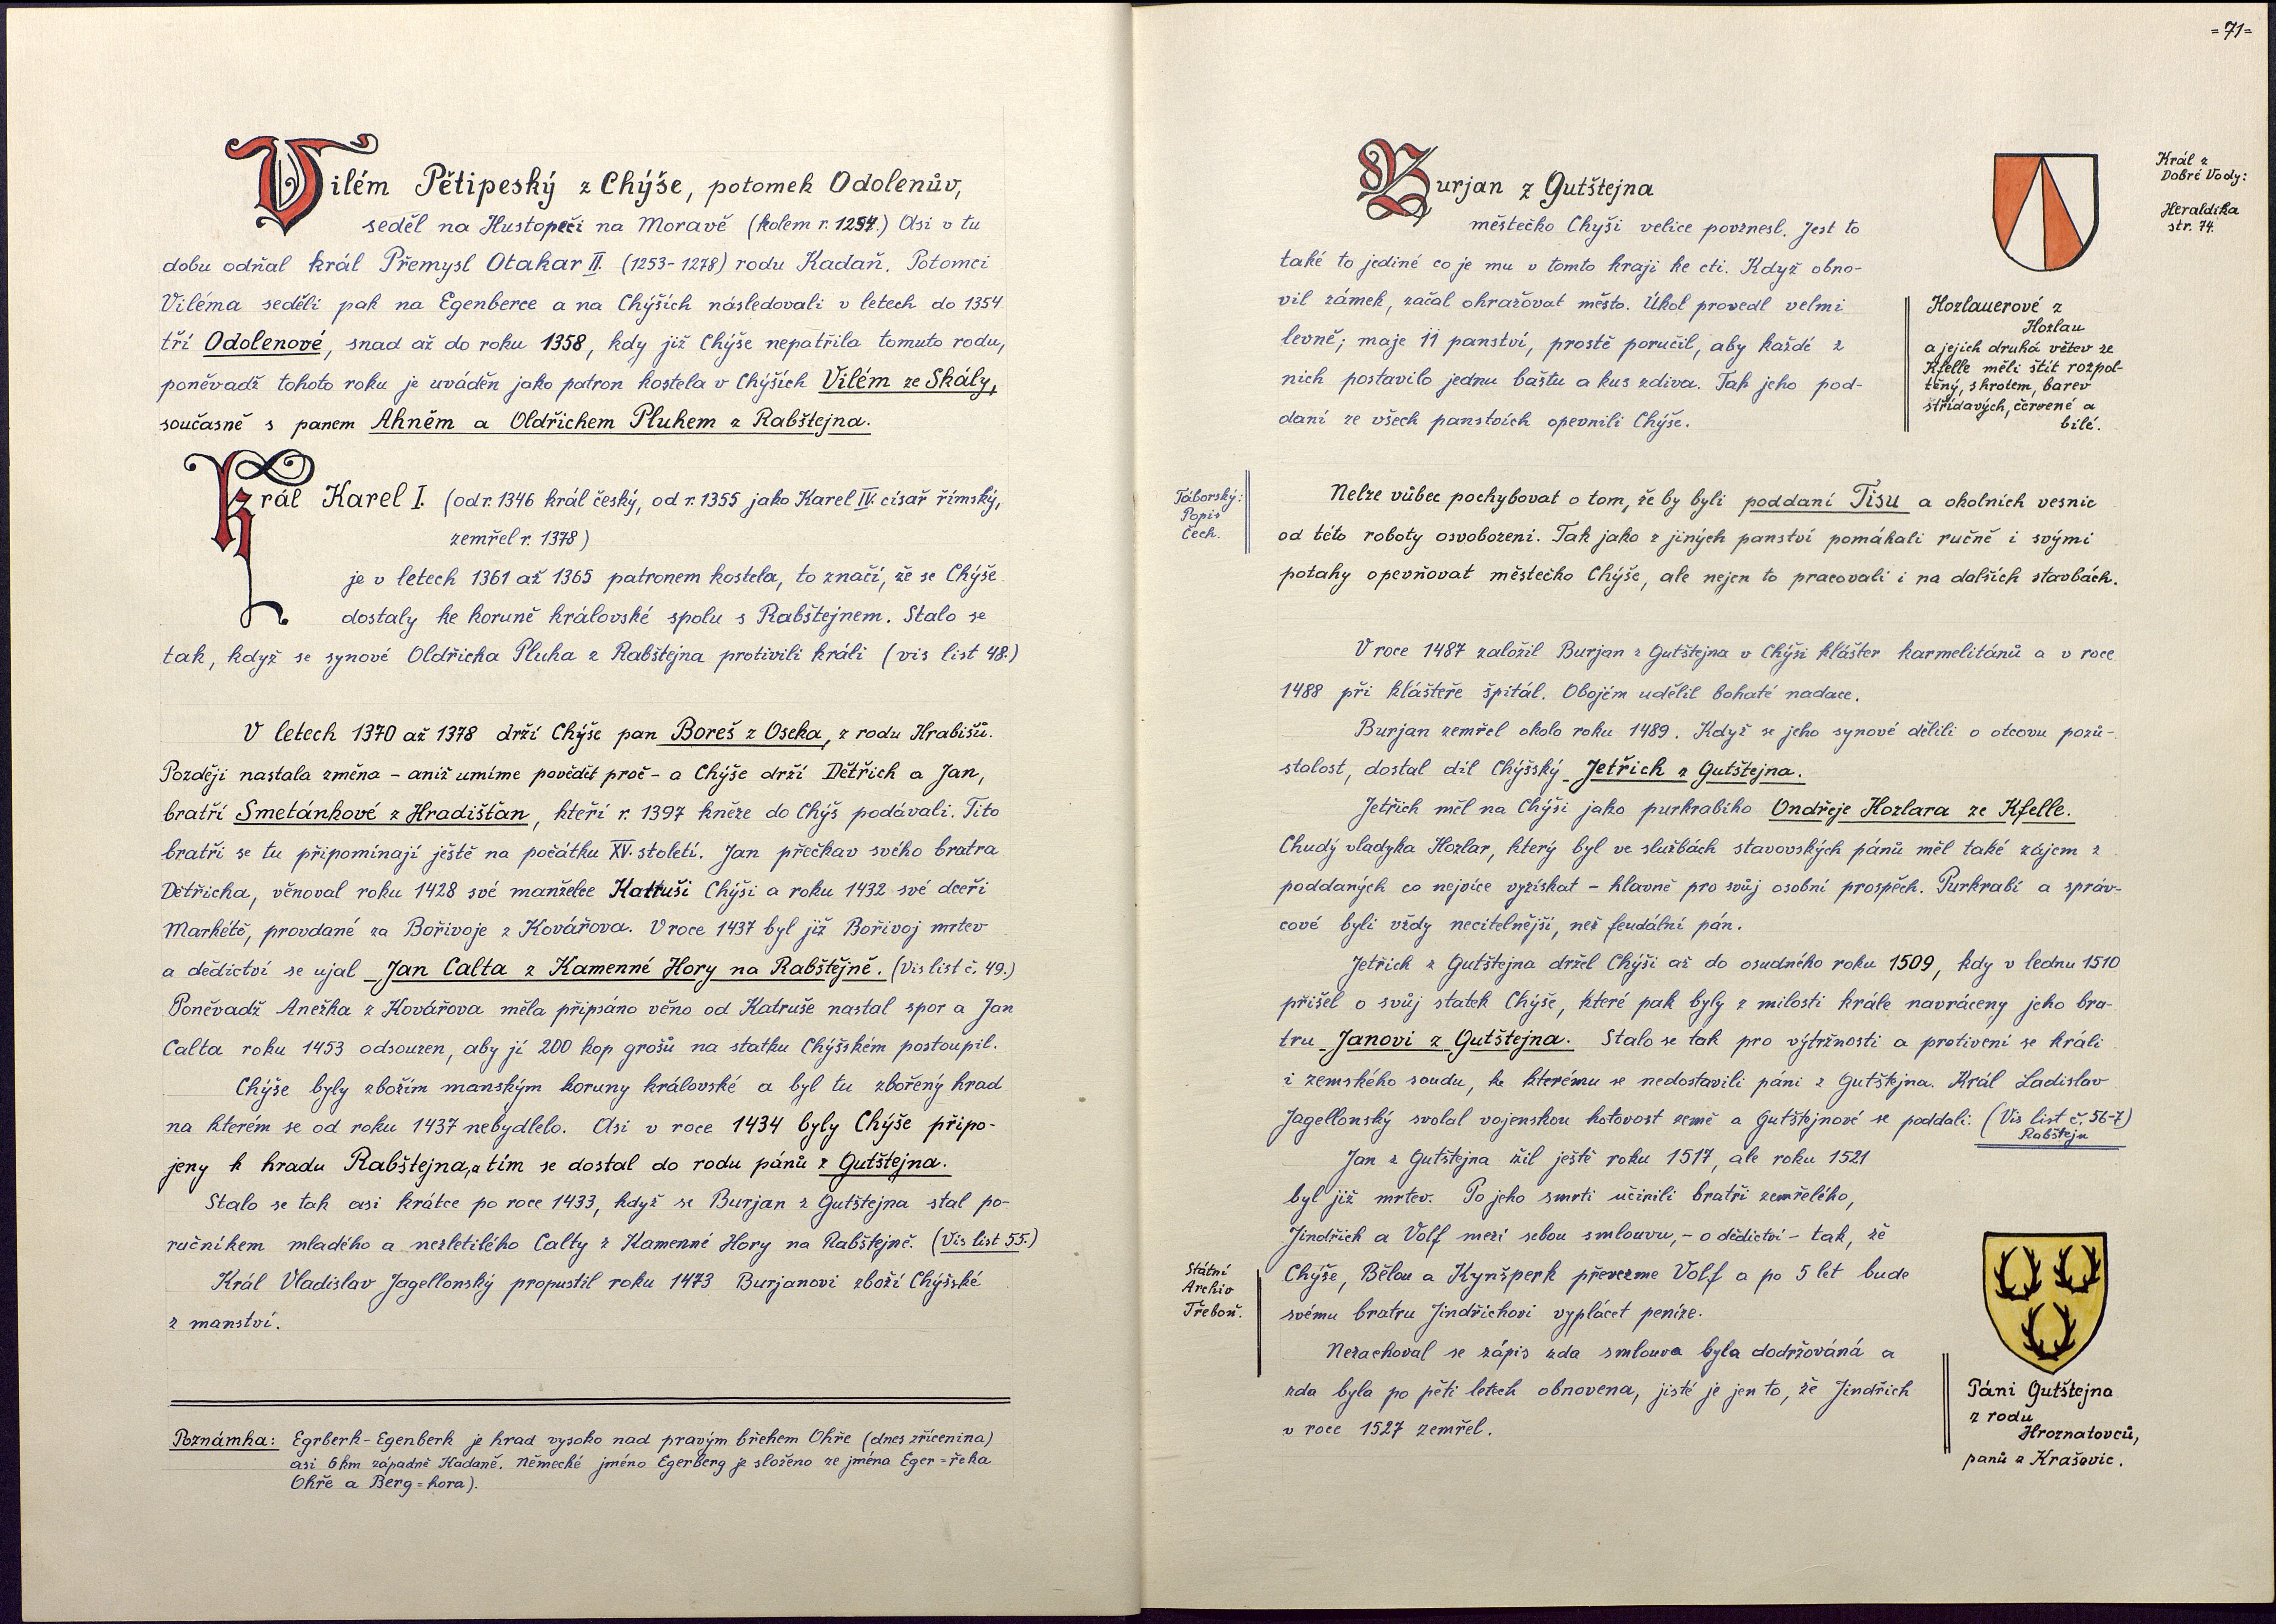 Vilém Pětipeský z Chýše, potomek Odolenův,
seděl na Hustopeči na Moravě (kolem r. 1254.) Asi v tu
dobu odňal král Přemysl Otakar II. (1253-1278) rodu Kadaň. Potomci
Viléma seděli pak na Egenberce a na Chýších následovali v letech do 1354
tří Odolenové, snad až do roku 1358, kdy již Chýše nepatřila tomuto rodu,
poněvadž tohoto roku je uváděn jako patron kostela v Chýších Vilém ze Skály,
současně s panem Ahněm a Oldřichem Pluhem z Rabštejna.
Král Karel I. (od r. 1346 král český, od r. 1355 jako Karel IV. císař římský,
zemřel r. 1378)
je v letech 1361 až 1365 patronem kostela, to značí, že se Chýše
dostaly ke koruně královské spolu s Rabštejnem. Stalo se
tak, když se synové Oldřicha Pluha z Rabštejna protivili králi (vis list 48.)
V letech 1370 až 1378 drží Chýše pan Boreš z Oseka, z rodu Hrabišů.
Později nastala změna - aniž umíme povědět proč - a Chýše drží Dětřich a Jan,
bratří Smetánkové z Hradišťan, kteří r. 1397 kněze do Chýš podávali. Tito
bratři se tu připomínají ještě na počátku XV. století. Jan přečkav svého bratra
Dětřicha, věnoval roku 1428 své manželce Katruši Chýši a roku 1432 své dceři
Markétě, provdané za Bořivoje z Kovářova. V roce 1437 byl již Bořivoj mrtev
a dědictví se ujal Jan Calta z Kamenné Hory na Rabštějně. (Vis list č. 49.)
Poněvadž Anežka z Kovářova měla připsáno věno od Katruše nastal spor a Jan
Calta roku 1453 odsouzen, aby jí 200 kop grošů na statku Chýšském postoupil.
Chýše byly zbožím manským koruny královské a byl tu zbořený hrad
na kterém se od roku 1437 nebydlelo. Asi v roce 1434 byly Chýše připo-
jeny k hradu Rabštejna, a tím se dostal do rodu pánů z Gutštejna.
Stalo se tak asi krátce po roce 1433, když se Burjan z Gutštejna stal po-
ručníkem mladého a nezletilého Calty z Kamenné Hory na Rabštejně. (Vis list 55.)
Král Vladislav Jagellonský propustil roku 1473 Burjanovi zboží Chýšské
z manství.
Poznámka: Egrberk-Egenberk je hrad vysoko nad pravým břehem Ohře (dnes zřícenina)
asi 6 km západně Kadaně. Německé jméno Egerberg je složeno ze jména Eger = řeka
Ohře a Berg = hora).
=71=
Burjan z Gutštejna
městečko Chyši velice povznesl. Jest to
také to jediné co je mu v tomto kraji ke cti. Když obno-
vil zámek, začal ohražovat město. Úkol provedl velmi
levně; maje 11 panství, prostě poručil, aby každé z
nich postavilo jednu baštu a kus zdiva. Tak jeho pod-
daní ze všech panstvích opevnili Chýše.
Král z
Dobré Vody:
Heraldika
str. 74.
Hozlauerové z
Hozlau
a jejich druhá větev ze
Kfelle měli štít rozpol-
těný, s hrotem, barev
střídavých, červené a
bílé.
Táborský:
Popis
Čech.
Nelze vůbec pochybovat o tom, že by byli poddaní Tisu a okolních vesnic
od této roboty osvobozeni. Tak jako z jiných panství pomáhali ručně i svými
potahy opevňovat městečko Chýše, ale nejen to pracovali i na dalších stavbách.
V roce 1487 založil Burjan z Gutštejna v Chýši klášter karmelitánů a v roce
1488 při klášteře špitál. Obojím udělil bohaté nadace.
Burjan zemřel okolo roku 1489. Když se jeho synové dělili o otcovu pozů-
stalost, dostal díl Chýšský Jetřich z Gutštejna.
Jetřich měl na Chýši jako purkrabího Ondřeje Hozlara ze Kfelle.
Chudý vladyka Hozlar, který byl ve službách stavovských pánů měl také zájem z
poddaných co nejvíce vyzískat - hlavně pro svůj osobní prospěch. Purkrabí a správ-
cové byli vždy necitelnější, než feudální pán.
Jetřich z Gutštejna držel Chýši až do osudného roku 1509, kdy v lednu 1510
přišel o svůj statek Chýše, které pak byly z milosti krále navráceny jeho bra-
tru Janovi z Gutštejna. Stalo se tak pro výtržnosti a protivení se králi
i zemského soudu, ke kterému se nedostavili páni z Gutštejna. Král Ladislav
Jagellonský svolal vojenskou hotovost země a Gutštejnové se poddali. (Vis list č. 56-7)
Rabštejn
Jan z Gutštejna žil ještě roku 1517, ale roku 1521
byl již mrtev. Po jeho smrti učinili bratři zemřelého,
Jindřich a Volf mezi sebou smlouvu, - o dědictví - tak, že
Chýše, Bělou a Kynšperk převezme Volf a po 5 let bude
svému bratru Jindřichovi vyplácet peníze.
Státní
Archiv
Třeboň.
Nezachoval se zápis zda smlouva byla dodržováná a
zda byla po pěti letech obnovena, jisté je jen to, že Jindřich
v roce 1527 zemřel.
Páni Gutštejna
z rodu
Hroznatovců,
panů z Krašovic.